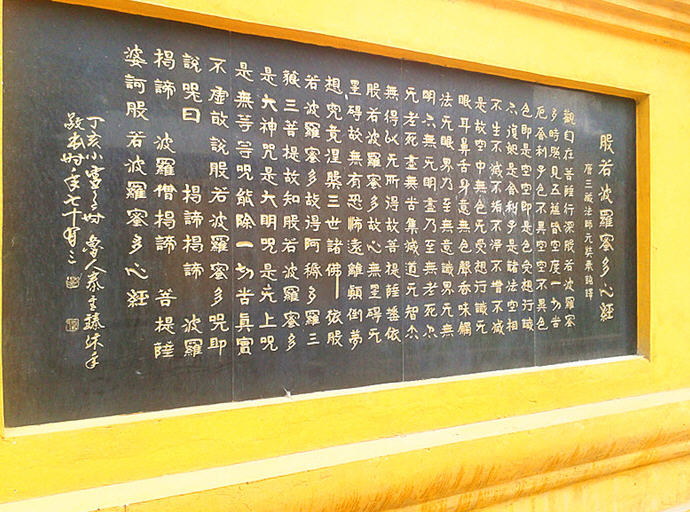 般若波羅蜜多心經
唐三藏法師元奘奉詔譯
觀自在菩薩行深般若波羅蜜
多時照見五蘊皆空度一切苦
厄舍利子色不異空空不異色
色即是空空即是色受想行識
亦復如是舍利子是諸法空相
不生不滅不垢不淨不增不減
是故空中無色无受想行識无
眼耳鼻舌身意無色聲香味觸
法无眼界乃至無意識界无無
明亦無无明盡乃至無老死亦
无老死盡無苦集滅道无智亦
無得以无所得故菩提薩埵依
般若波羅蜜多故心無罣礙无
罣礙故無有恐怖遠離顛倒夢
想究竟涅槃三世諸佛依般
若波羅蜜多故得阿耨多羅三
藐三菩提故知般若波羅蜜多
是大神咒是大明咒是无上咒
是無等等咒能除一切苦真實
不虛故說般若波羅蜜多咒即
說咒曰 揭諦揭諦 波羅
揭諦 波羅僧揭諦 菩提薩
婆訶般若波羅蜜多心經
丁亥小雪之時 魯人 臻沐手
敬書時年七十有三